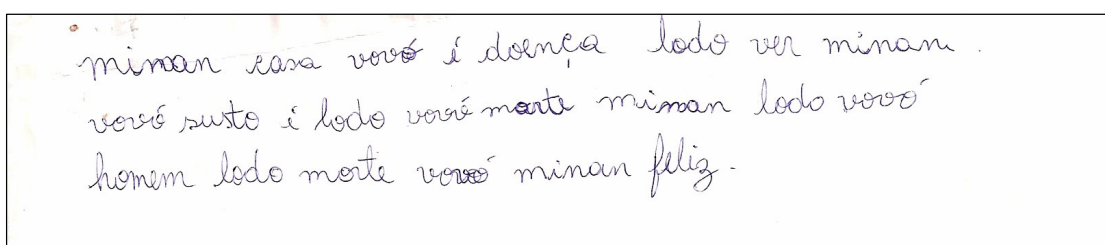 minan casa vovó i doença lodo ver minam.
vovó susto i lodo vovó morte minan lodo vovó
homem lodo morte vovó minan feliz.